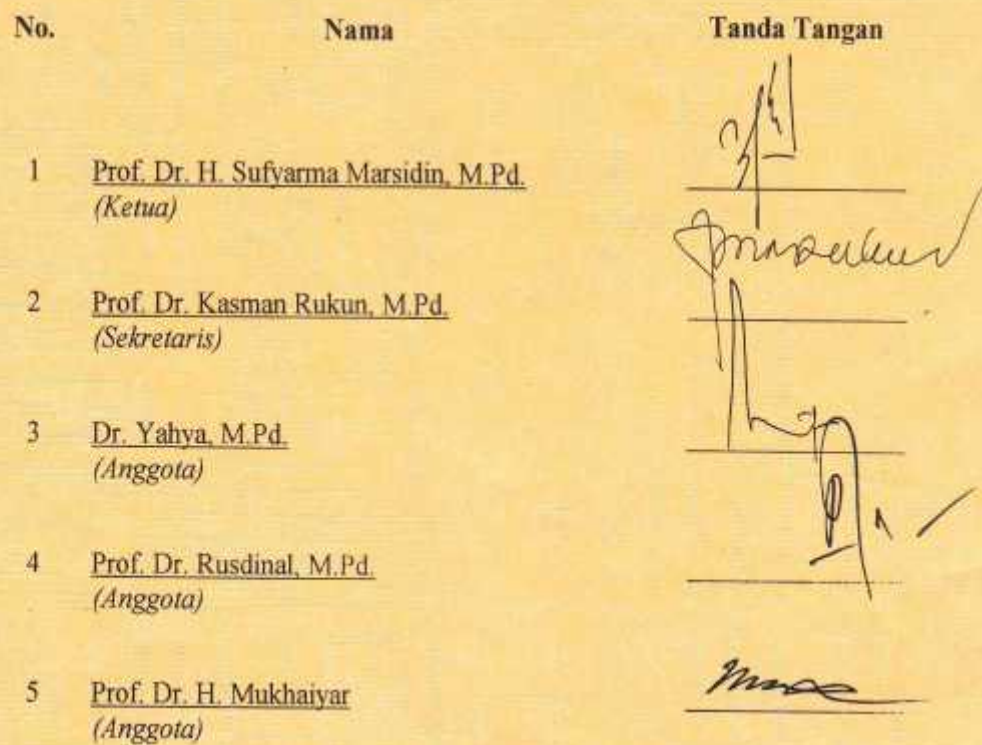 No. Nama Tanda Tangan
1 Prof. Dr. H. Sufyarma Marsidin, M.Pd.
(Ketua)
2 Prof. Dr. Kasman Rukun, M.Pd.
(Sekretaris)
3 Dr. Yahya, M.Pd.
(Anggota)
4 Prof. Dr. Rusdinal, M.Pd.
(Anggota)
5 Prof. Dr. H. Mukhaiyar
(Anggota)